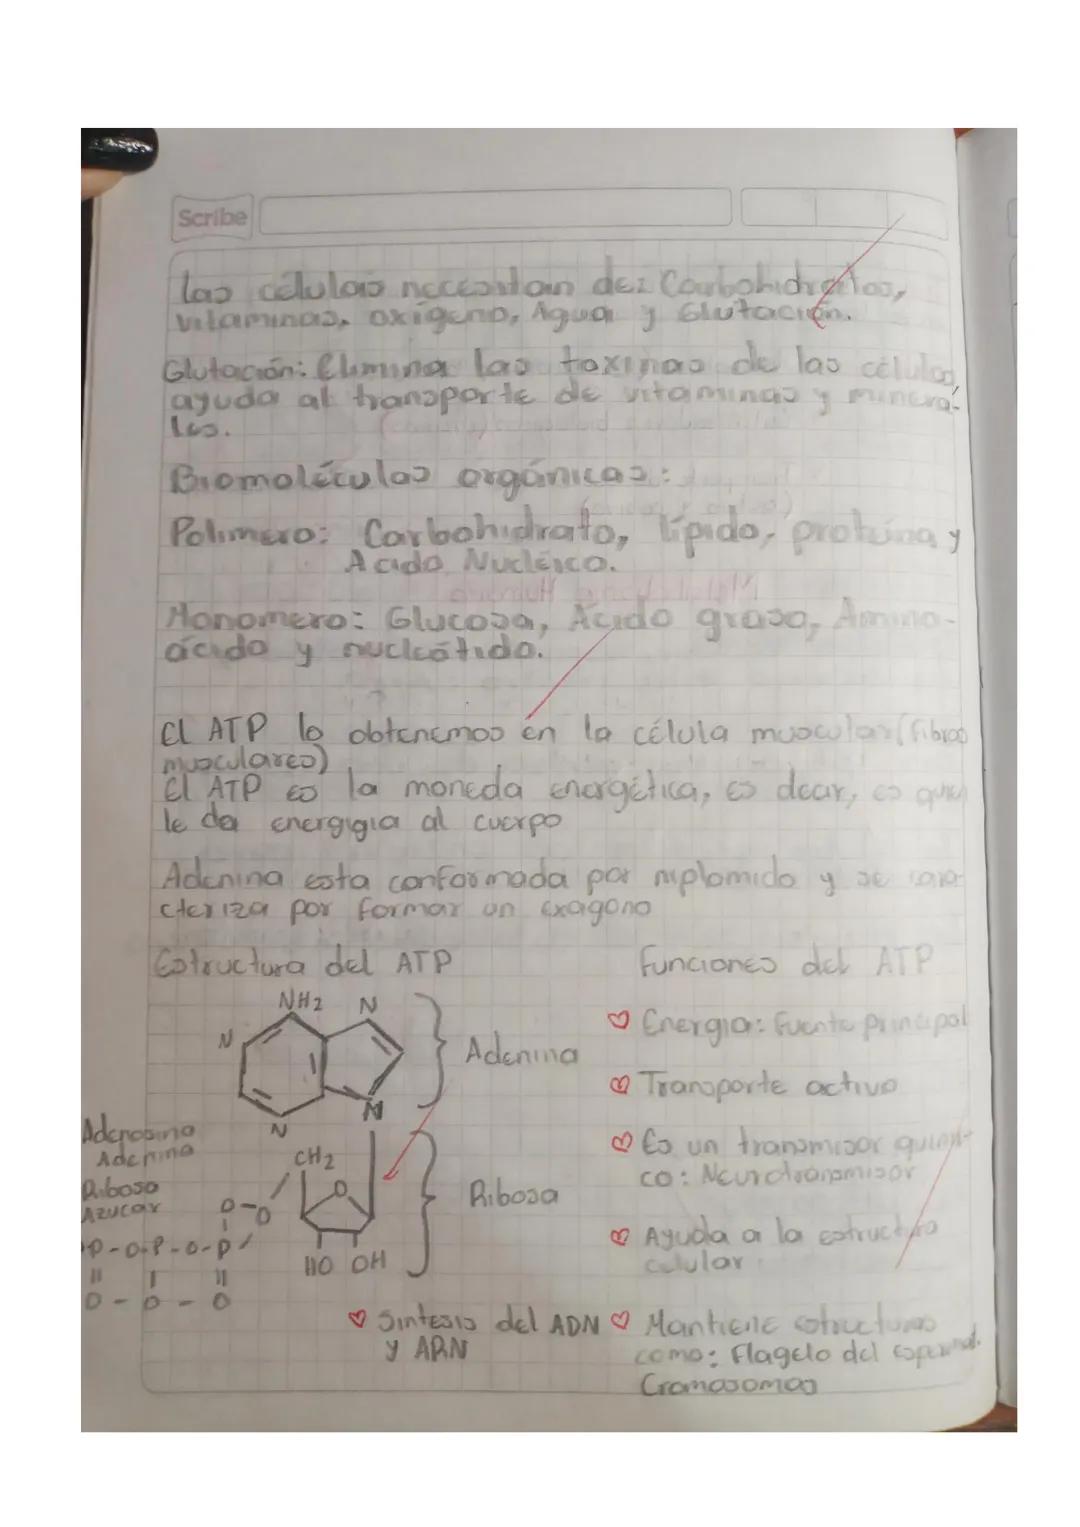 Scribe
Las células necesitan de: Carbohidratos,
vitaminas, oxigeno, Agua y Glutación.
Glutación: Elimina las toxinas de las células,
ayuda al transporte de vitaminas y minera-
les.
Biomoléculas orgánicas:
Polimero: Carbohidrato, lípido, proteína y
Acido Nucléico.
Monomero: Glucosa, Ácido graso, Amino-
ácido y nucleótido.
El ATP lo obtenemos en la célula muscular (fibras
musculares)
El ATP es la moneda energética, es decir, es quien
le da energigia al cuerpo
Adenina esta conformada por y se cara-
cteriza por formar un exagono
Estructura del ATP
Funciones del ATP
NH2 N
N
Adenina
N
N
Energia: Fuente principal
Transporte activo
Es un transmisor quimi-
co: Neurotransmisor
Ayuda a la estructura
celular
Adenosina
Adenina
Ribosa
Azucar
CH2
O
Ribosa
O-O
P-O-P-O-P
O - O - O
HO OH
Sintesis del ADN
y ARN
Mantiene estructuras
como: Flagelo del espermat.
Cromosomas